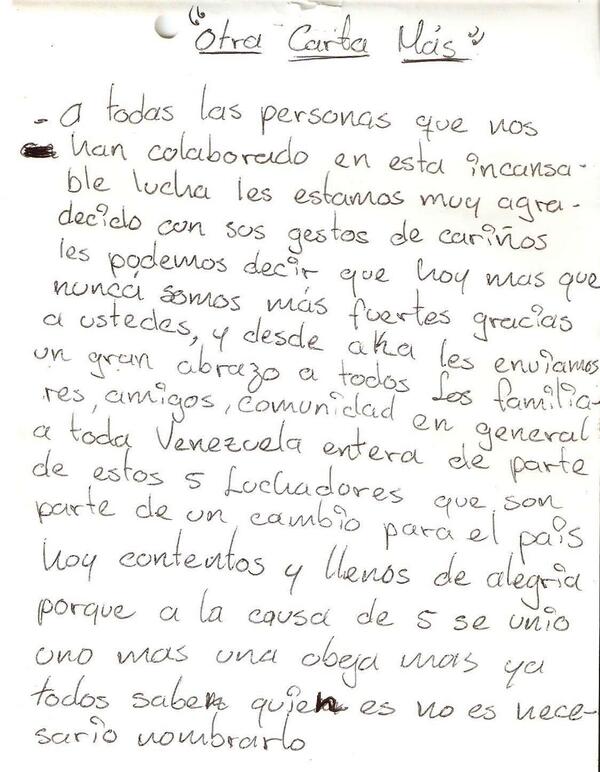 "Otra Carta Más"
- a todas las personas que nos
han colaborado en esta incansa-
ble lucha les estamos muy agra-
decido con sus gestos de cariños
les podemos decir que hoy mas que
nunca somos más fuertes gracias
a ustedes, y desde aka les enviamos
un gran abrazo a todos los familia-
res, amigos, comunidad en general
a toda Venezuela entera de parte
de estos 5 Luchadores que son
parte de un cambio para el pais
hoy contentos y llenos de alegria
porque a la causa de 5 se unio
uno mas una obeja mas ya
todos saben quien es no es nece-
sario nombrarlo